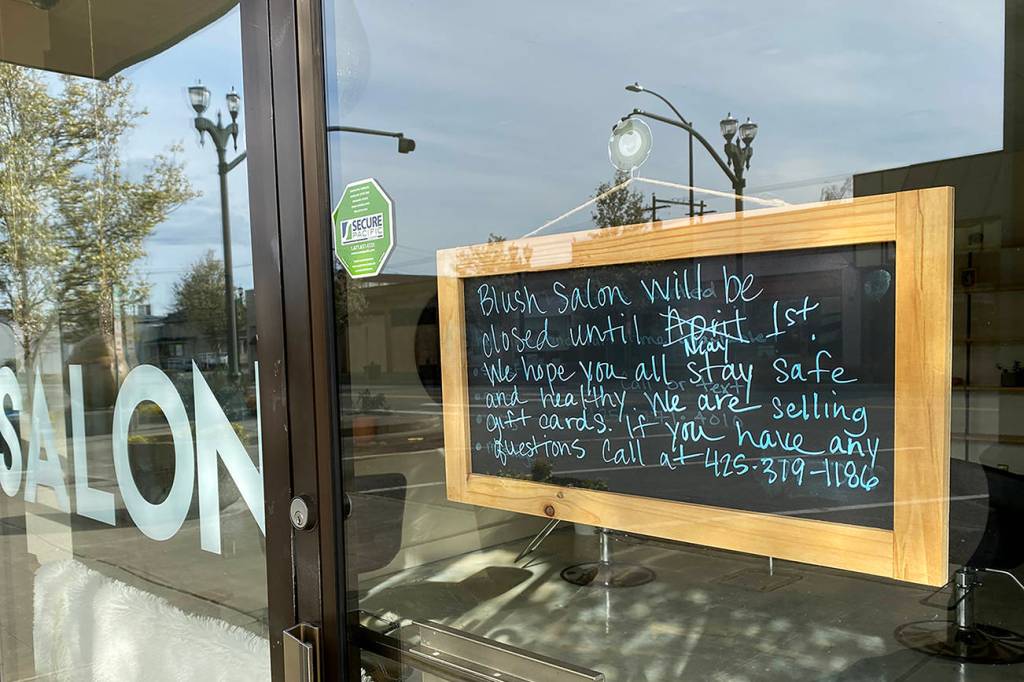 SALON
SECURE
PACIFIC
Blush Salon will be
closed until April 1st.
May
We hope you all stay safe
and healthy. We are selling
gift cards. If you have any
questions call at 425-379-1186